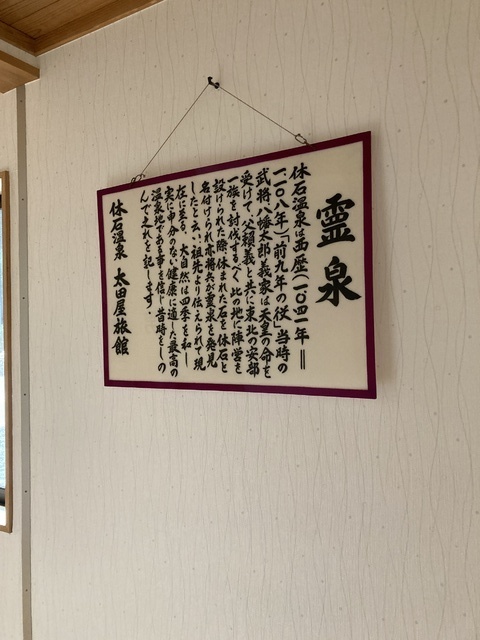 霊泉
休石温泉は西歴（一〇四一年＝
一一〇八年）「前九年の役」当時の
武将、八幡太郎義家は天皇の命を
受けて、父頼義と共に東北の安部
一族を討伐するべく、此の地に陣営を
設けられた際、休まれた石を休石と
名付けられ亦将兵が霊泉を発見
したと云い、祖先より伝えられて現
在に至る、大自然は四季を和し
実に申分のない健康に適した最高の
温泉地である事を信じ昔時をしの
んで之れを記します．
休石温泉 太田屋旅館